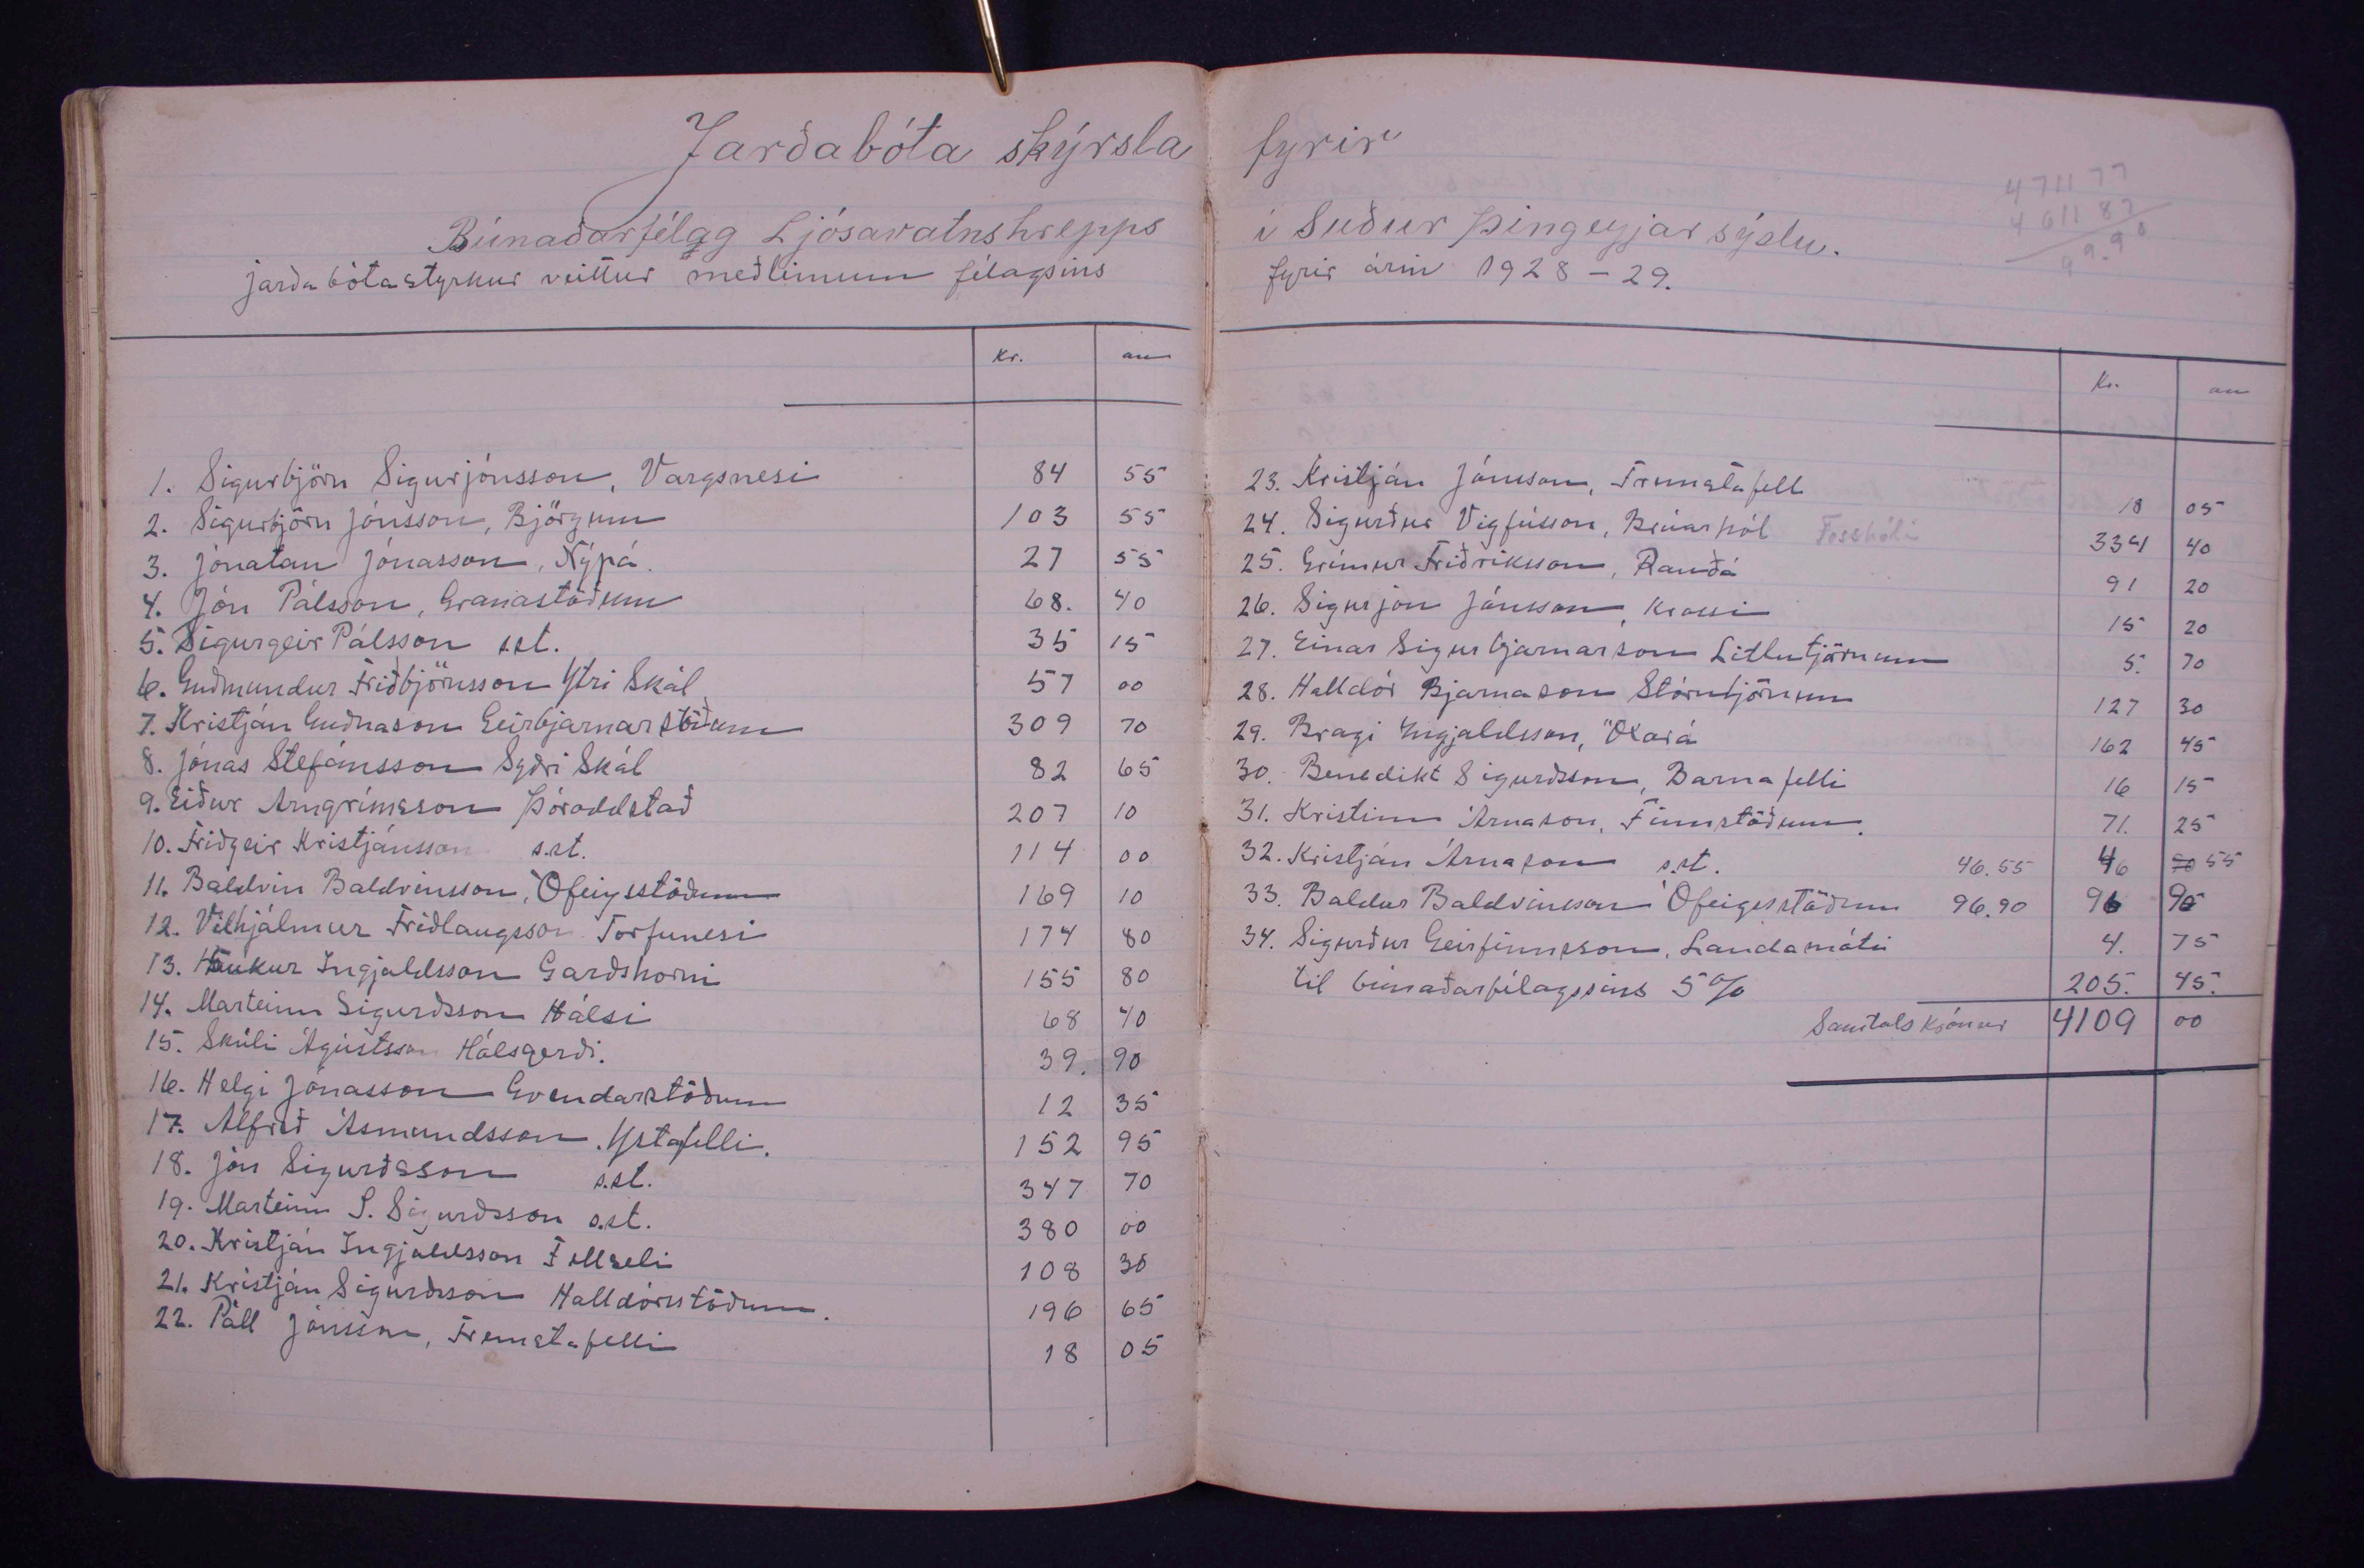 Jarðabóta skýrsla fyrir
Búnaðarfélag Ljósavatnshrepps í Suður Þingeyjar sýslu.
jarðabótastyrkur veittur meðlimum félagsins fyrir árin 1928-29.
471177
461187
99.90
kr. au
1. Sigurbjörn Sigurjónsson, Vargsnesi 84 55
2. Sigurbjörn Jónsson, Björgum 103 55
3. Jónatan Jónasson, Nýpá. 27 55
4. Jón Pálsson, Granastöðum 68. 40
5. Sigurgeir Pálsson s.st. 35 15
6. Guðmundur Friðbjörnsson Ytri Skál 57 00
7. Kristján Guðnason Geirbjarnarstöðum 309 70
8. Jónas Stefánsson Syðri Skál 82 65
9. Eiður Arngrímsson Þóroddstað 207 10
10. Friðgeir Kristjánsson s.st. 114 00
11. Baldvin Baldvinsson, Ófeigsstöðum 169 10
12. Vilhjálmur Friðlaugsson Torfunesi 174 80
13. Haukur Ingjaldsson Garðshorni 155 80
14. Marteinn Sigurðsson Hálsi 68 40
15. Skúli Ágústsson Hálsgerði. 39. 90
16. Helgi Jónasson Gvendarstöðum 12 35
17. Alfreð Ásmundsson. Ystafelli. 152 95
18. Jón Sigurðsson s.st. 347 70
19. Marteinn S. Sigurðsson s.st. 380 00
20. Kristján Ingjaldsson Fellseli 108 30
21. Kristján Sigurðsson Halldórsstöðum. 196 65
22. Páll Jónsson, Fremstafelli 18 05
Kr. au
23. Kristján Jónsson, Fremstafell 18 05
24. Sigurður Vigfússon, Brúarhól Fosshóli 334 40
25. Grímur Friðriksson, Rauðá 91 20
26. Sigurjón Jónsson, Krossi 15 20
27. Einar Sigurbjarnarson Litlutjörnum 5. 70
28. Halldór Bjarnason Stórutjörnum 127 30
29. Bragi Ingjaldsson, Öxará 162 45
30. Benedikt Sigurðsson, Barnafelli 16 15
31. Kristinn Árnason, Finnstöðum. 71. 25
32. Kristján Árnason s.st. 46.55 46 50 55
33. Baldur Baldvinsson Ófeigsstöðum 96.90 96 90
34. Sigurður Geirfinnsson, Landamóti 4. 75
til búnaðarfélagsins 5% 205. 45.
Samtals krónur 4109 00